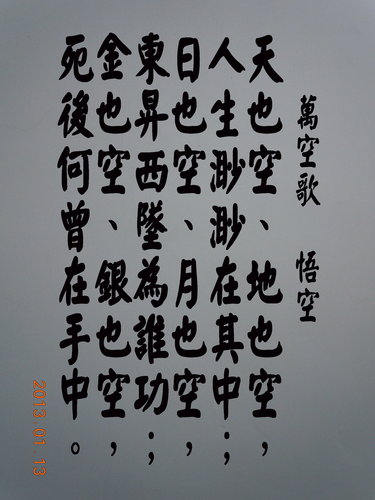 萬空歌 悟空
天也空、地也空，
人生渺渺在其中；
日也空、月也空，
東昇西墜為誰功；
金也空、銀也空，
死後何曾在手中。
2013.01.13